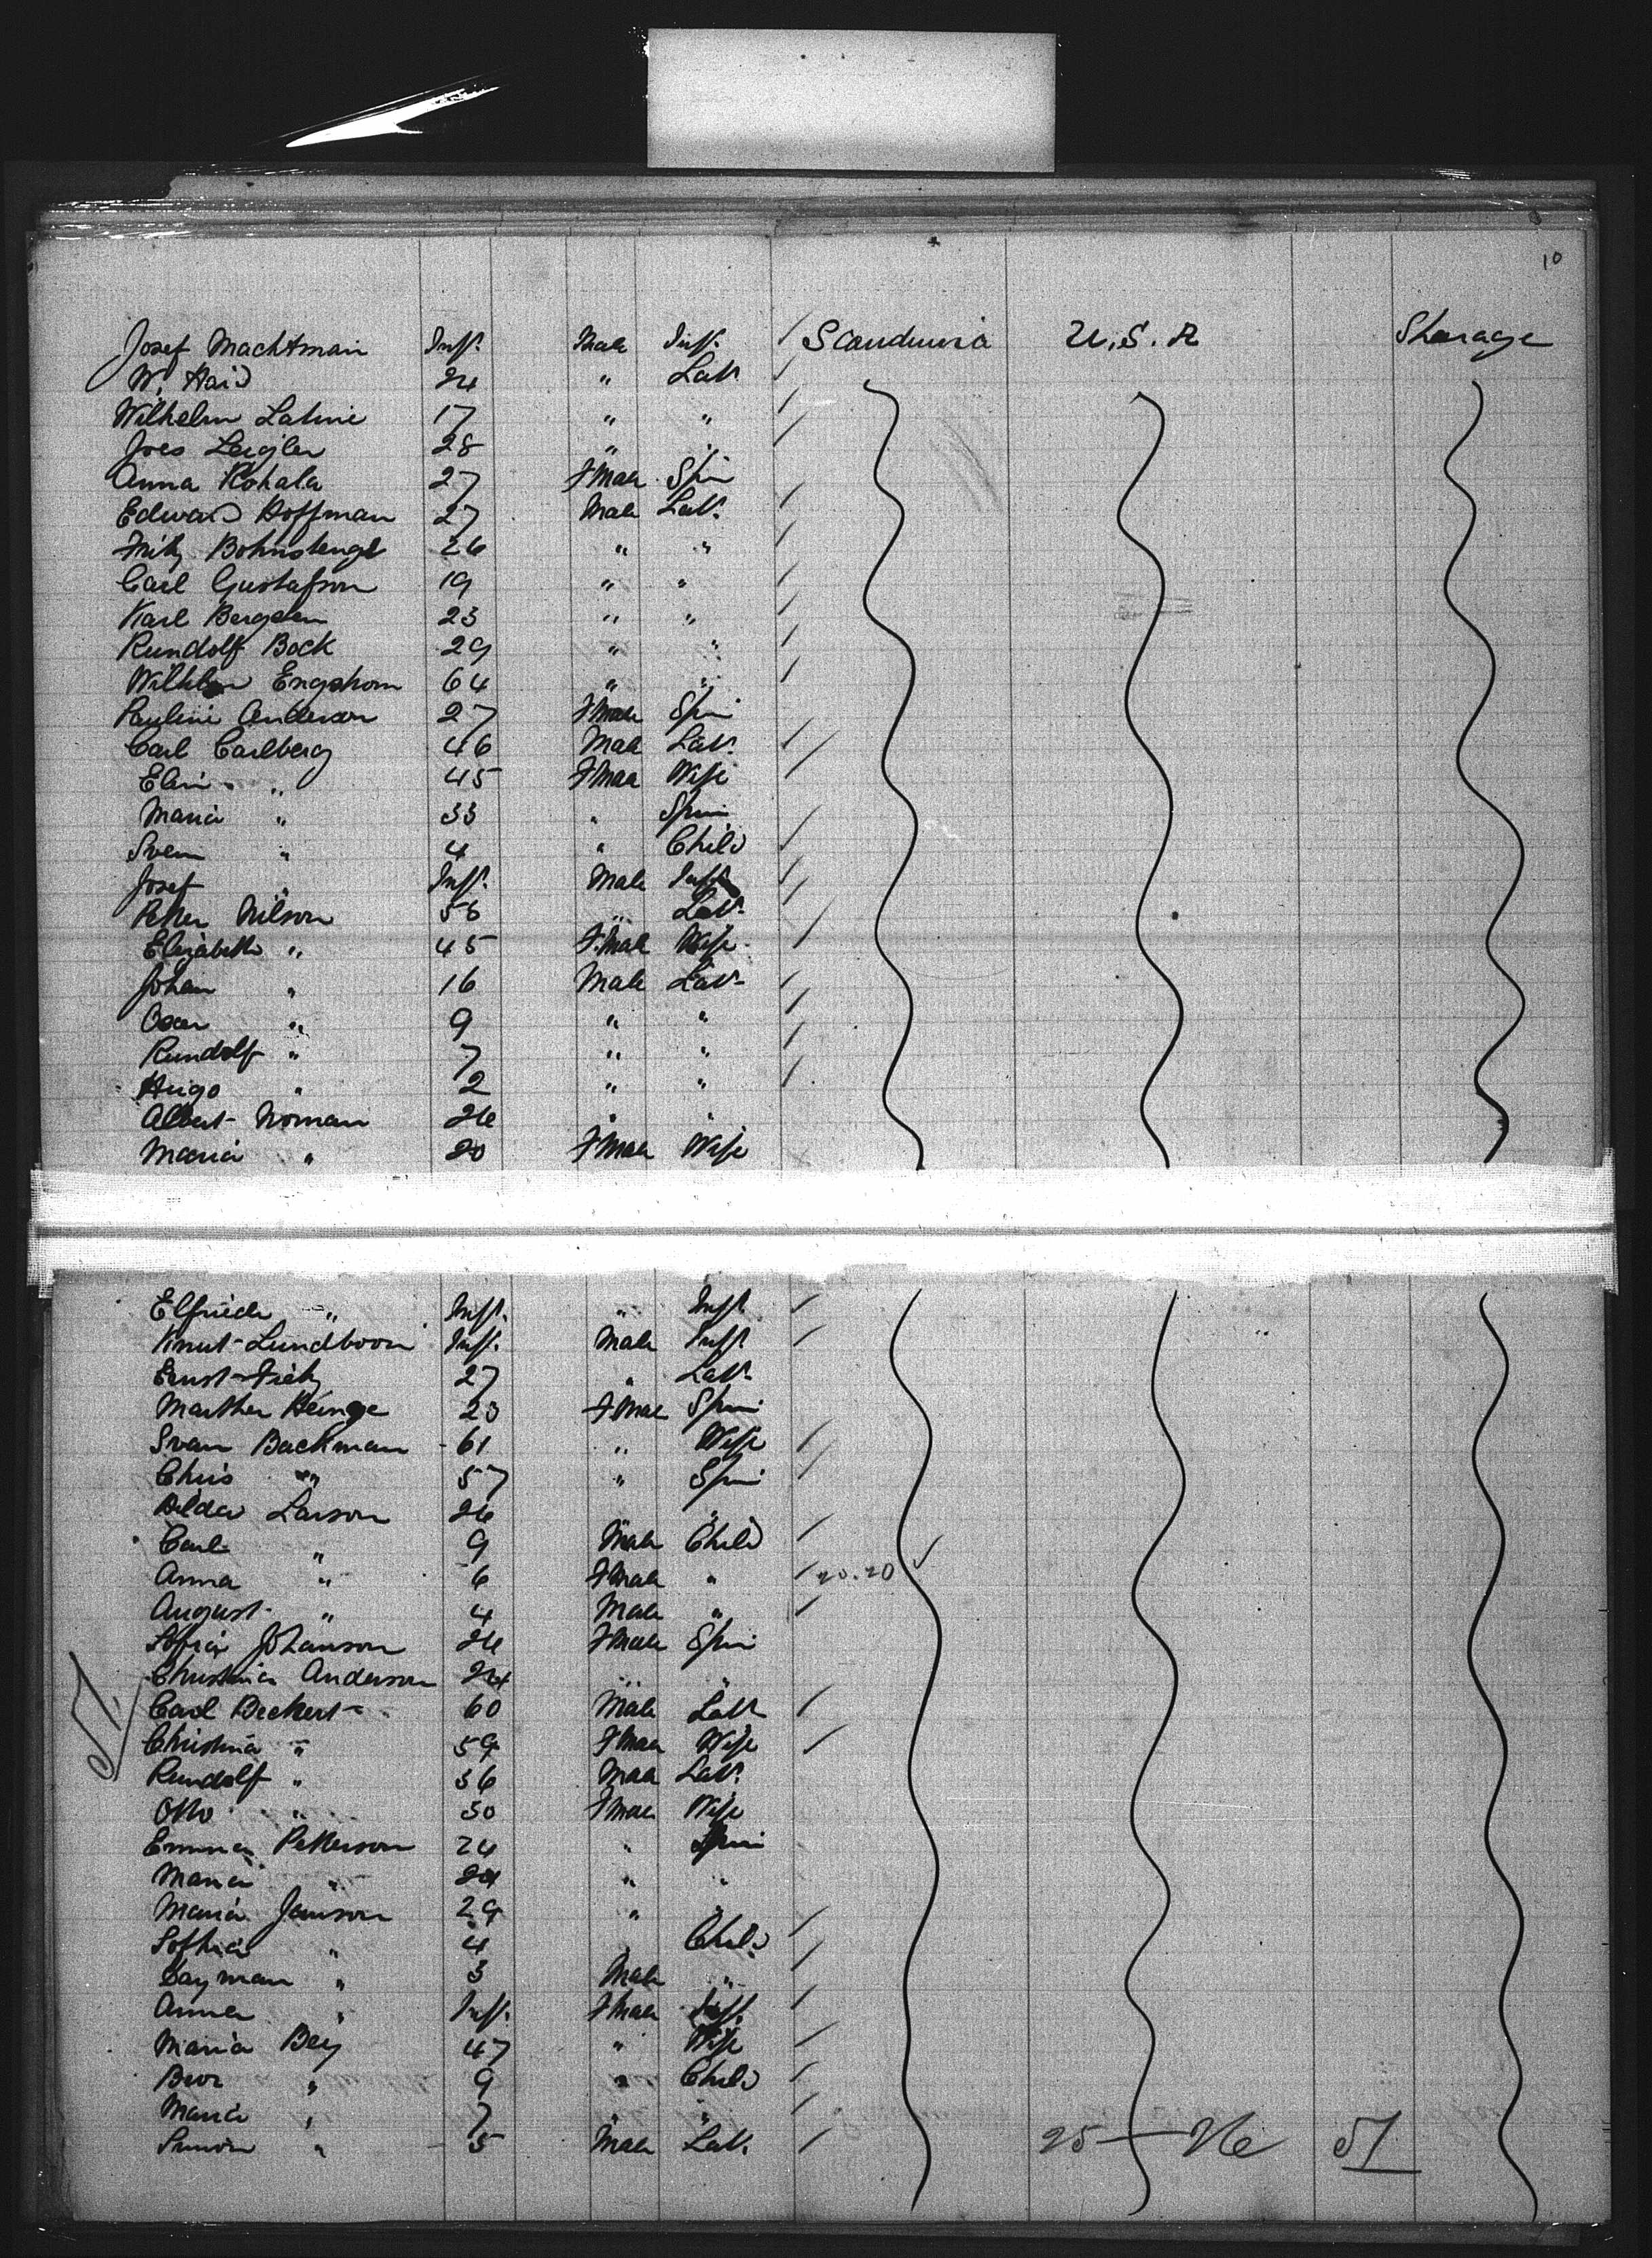 10
Josef Machtman Inft. Male Inft. Scandinvia U.S.A Sterage
W. Haid 24 " Lab.
Wilhelm Latine 17 " "
28 "
Anna Kohala 27 FMale Spin
Edward Hoffman 27 Male Lab.
Fritz Bohnstengl 26 " "
Carl Gustafson 19 " "
Karl 23 " "
Rundolf Bock 29 " "
Engshom 64 " "
Pauline Anderson 27 FMale Spin
Carl Carlberg 46 Male Lab.
Elin " 45 FMale Wife
Maria " 33 " Spin
Sven " 4 " Child
Josef " Inft. Male Inft
Peter Nilson 56 " Lab.
Elizabeth " 45 F.Male Wife
Johan " 16 Male Lab.
Oscar " 9 " "
Rundolf " 7 " "
Hugo " 2 " "
Albert Noman 26 " "
Maria " 20 FMale Wife
Elfriede " Inft. " Inft
Knut Lundboon Inft. Male Inft
Ernst 27 " Lab.
Marther Heinge 23 FMale Spin
Svan Backman 61 " Wife
Chris " 57 " Spin
Hilda Larson 26 "
Carl " 9 Male Child
Anna " 6 FMale " 20.20
August " 4 Male "
Sofia Johanson 26 FMale Spin
Christina Anderson 24 " "
51
Carl Deckert 60 Male Lab
Christina " 59 FMale Wife
Rundolf " 36 Male Lab.
Otto " 30 FMale Wife
Emma Petterson 24 " Spin
Maria " 24 " "
Maria Janson 29 " "
Sofhia " 4 " Child
" 3 Male "
Anna " Inft. FMale Inft.
Maria Bey 47 " Wife
" 9 " Child
Maria " 7 "
Simon " 5 Male Lab. 25 — 26 51